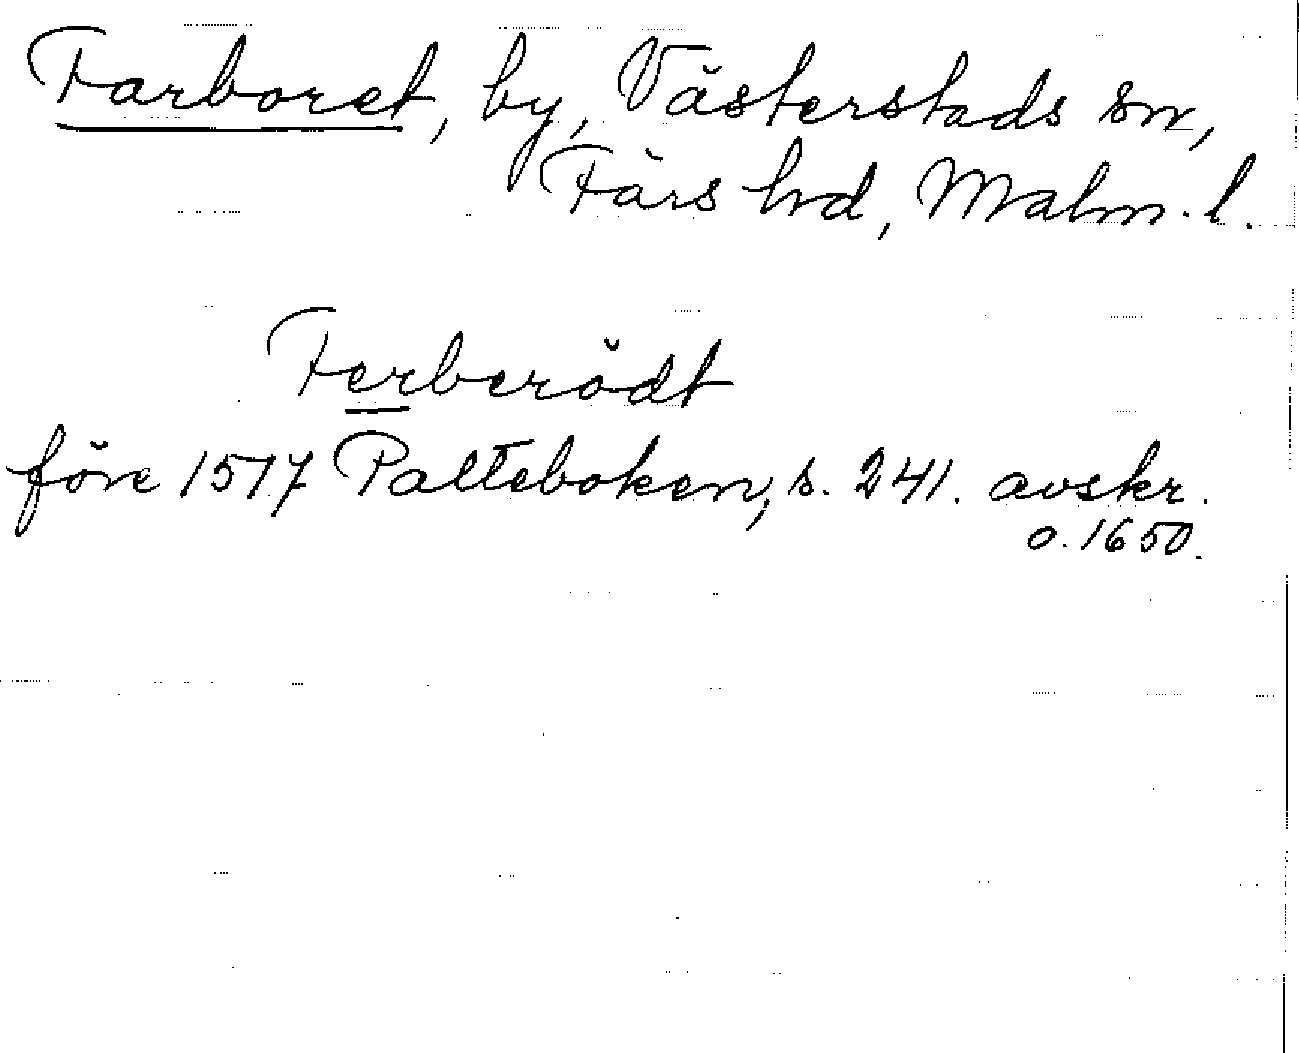 Farboret, by, Västerstads sn,
Färs hd, Malm. l.
Ferberödt
före 1517 Palteboken, s. 241. avskr.
o. 1650.